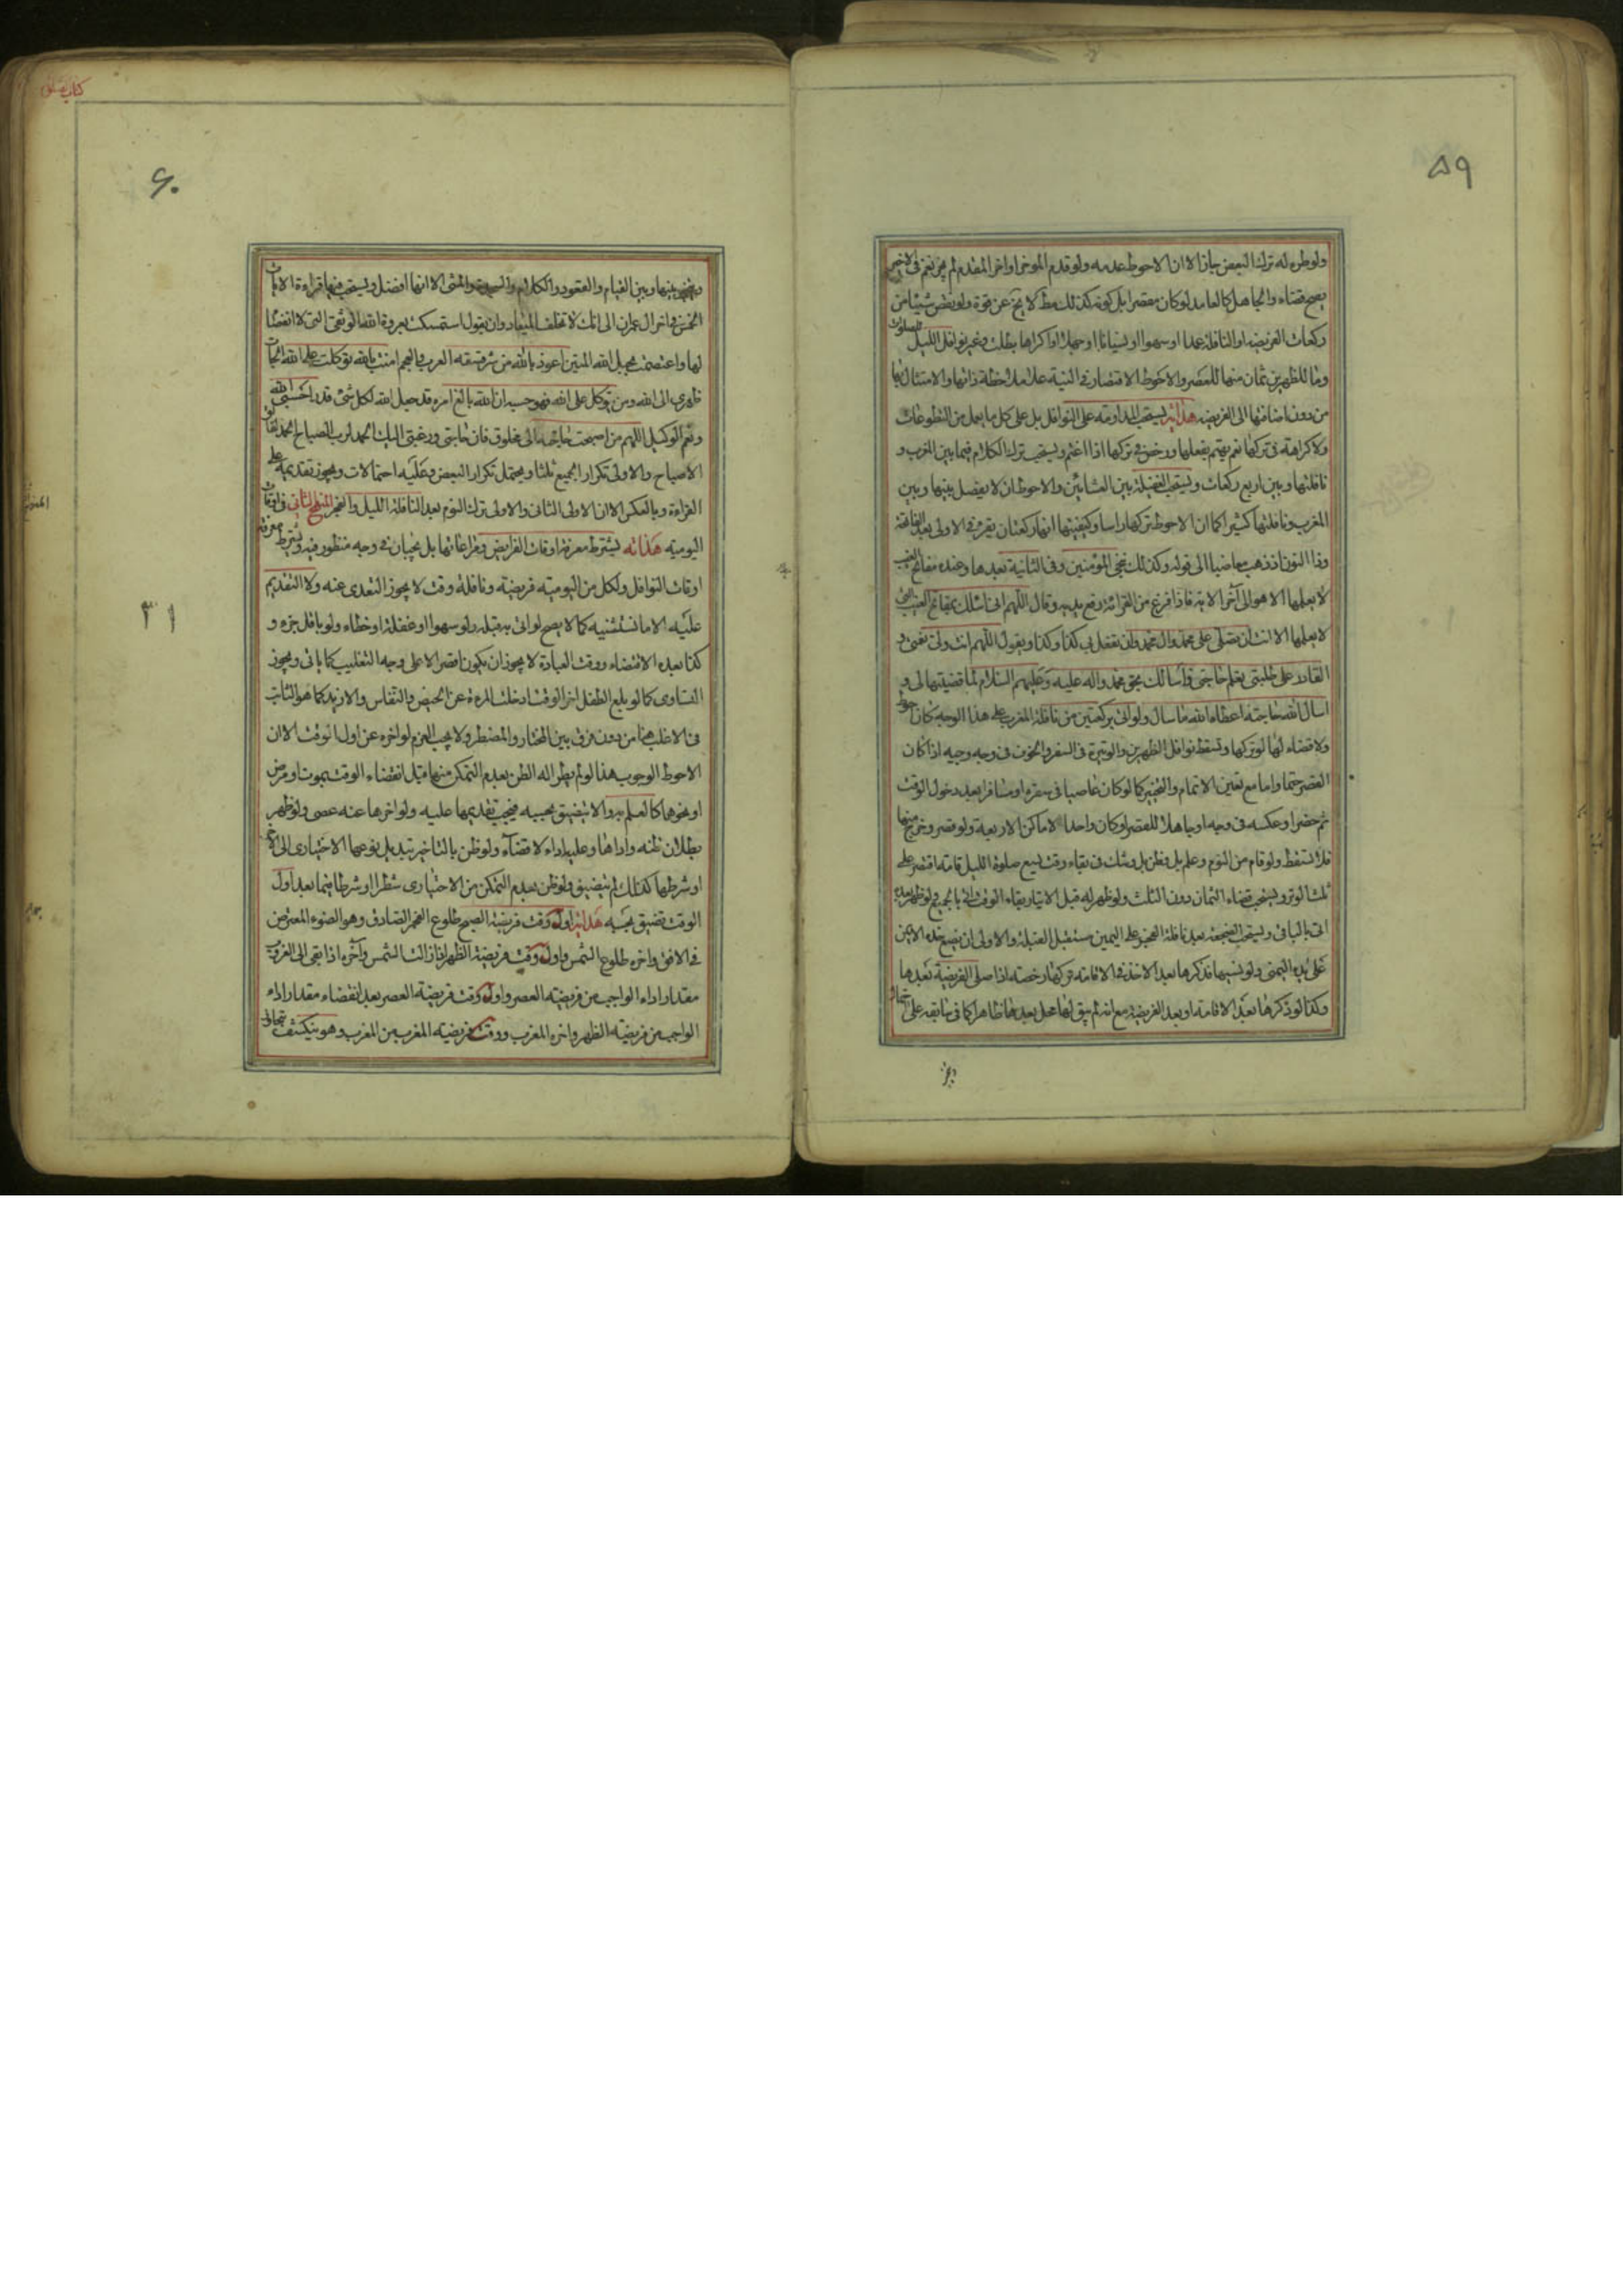 ٥٩
ولو طرء له ترك البعض جاز الا ان الاحوط عدمه ولو قدم الموخر او اخر المقدم لم يجز نعم في الاخير
يصح قضاء والجاهل كالعامد لو كان مقصرا بل كونه كذلك مط لا يخ عن قوة ولو نقص شيئا من
ركعات الفريضة او النافلة عمدا او سهوا او نسيانا او جهلا او اكراها بطلت وغير نوافل الليل
وما للظهرين ثمان منها للعصر والاحوط الاقتصار في النية على ملاحظة ذاتها والامتثال بها
من دون اضافتها الى الفريضة هداية يستحب المداومة على النوافل بل على كل ما يعمل من التطوعات
ولا كراهة في تركها نعم يهتم بفعلها ورخص في تركها اذا اغتم ويستحب ترك الكلام فيما بين المغرب و
نافلتها وبين اربع ركعات ويستحب الغفيلة بين العشائين والاحوط ان لا يفصل بينها وبين
المغرب ونافلتها كثيرا كما ان الاحوط تركها راسا وكيفيتها انها ركعتان يقرء في الاولى بعد الفاتحة
وذا النون اذ ذهب مغاضبا الى قوله وكذلك ننجي المؤمنين وفي الثانية بعدها وعنده مفاتح الغيب
لا يعلمها الا هو الى آخر الاية فاذا فرغ من القرائة رفع يديه وقال اللهم اني اسئلك بمفاتح الغيب التي
لا يعلمها الا انت ان تصلي على محمد وال محمد وان تفعل بي كذا وكذا ويقول اللهم انت ولي نعمتي و
القادر على طلبتي تعلم حاجتي فأسألك بحق محمد واله عليه وعليهم السلام لما قضيتها لي و
اسال الله حاجته اعطاه الله ما سال ولو اتى بركعتين من نافلة المغرب على هذا الوجه كان احوط
ولا قضاء لها لو تركها وتسقط نوافل الظهرين والوتيرة في السفر والخوف في وجه وجيه اذا كان
القصر حتما واما مع تعين الاتمام والتخيير كما لو كان عاصيا في سفره او سافر بعد دخول الوقت
ثم حضر او عكسه في وجه او جاهلا للقصر او كان واحدا لاماكن الاربعة ولو قصر وخرج منها
فلا تسقط ولو قام من النوم وعلم بل وظن بل وشك في بقاء وقت يسع صلوة الليل تامة اقتصر على
ثلث الوتر ويستحب قضاء الثمان دون الثلث ولو ظهر له قبل الاتيان بقاء الوقت اتى بالجميع ولو ظهر بعده
اتى بالباقي ويستحب الضجعة بعد نافلة الفجر على اليمين مستقبل القبلة والاولى ان يضع خده الايمن
على يده اليمنى ولو نسيها فذكرها بعد الاخذ في الاقامة تركها رخصة اذا صلى الفريضة بعدها
وكذا لو ذكرها بعد الاقامة او بعد الفريضة مع انه لم يبق لها محل بعدها ظاهرا كما في سابقه على
ويخير
٦٠
كتاب الصلوة
ويخير بينها وبين القيام والقعود والكلام والسجدة والمشي الا انها افضل ويستحب فيها قراءة الايات
الخمس في اخر ال عمران الى انك لا تخلف الميعاد وان يقول استمسكت بعروة الله الوثقى التي لا انفصام
لها واعتصمت بحبل الله المتين اعوذ بالله من شر فسقة العرب والعجم امنت بالله توكلت على الله الجأت
ظهري الى الله ومن يتوكل على الله فهو حسبه ان الله بالغ امره قد جعل الله لكل شئ قدرا حسبي الله
ونعم الوكيل اللهم من اصبحت حاجته الى مخلوق فان حاجتي ورغبتي اليك الحمد لرب الصباح الحمد لفالق
الاصباح والاولى تكرار الجميع ثلثا ويحتمل تكرار البعض وعليه احتمالات ويجوز تقديمه على
القراءة وبالعكس الا ان الاولى الثاني والاولى ترك النوم بعد النافلة الليل والفجر المنهج الثاني في اوقات
اليومية هداية يشترط معرفة اوقات الفرايض ومراعاتها بل يجبان في وجه منظور فيه ويشترط معرفة
اوقات النوافل ولكل من اليومية فريضة ونافلة وقت لا يجوز التعدى عنه ولا التقديم
عليه الا ما نستثنيه كما لا يصح لو اتى به قبله ولو سهوا او غفلة او خطاء ولو باقل جزء و
كذا بعده الا قضاء ووقت العبادة لا يجوز ان يكون اقصر الا على وجه التغليب كما ياتي ويجوز
التساوى كما لو بلغ الطفل اخر الوقت او خلت المرءة عن الحيض والنفاس والازيد كما هو الثابت
في الاغلب هنا من دون فرق بين المختار والمضطر ولا يجب العزم لو اخره عن اول الوقت الا ان
الاحوط الوجوب هذا لو لم يطرء له الظن بعدم التمكن منها قبل انقضاء الوقت بموت او مرض
او نحوهما كالعلم به والا يتضيق بحسبه فيجب تقديمها عليه ولو اخرها عنه عصى ولو ظهر
بطلان ظنه واداها وعليه اداء لا قضاء ولو ظن بالتاخير تبديل نوعها الاختيارى الى الاخر
او شرطها كذلك لم يتضيق ولو ظن بعدم التمكن من الاختيارى شطرا او شرطا فيما بعد اول
الوقت تضيق بحسبه هداية اول وقت فريضة الصبح طلوع الفجر الصادق وهو الضوء المعترض
في الافق واخره طلوع الشمس واول وقت فريضة الظهر اذا زالت الشمس وآخره اذا بقى الى الغروب
مقدار اداء الواجب من فريضة العصر واول وقت فريضة العصر بعد انقضاء مقدار اداء
الواجب من فريضة الظهر واخره المغرب ووقت فريضة المغرب من المغرب وهو ينكشف بتجاوز
٣١